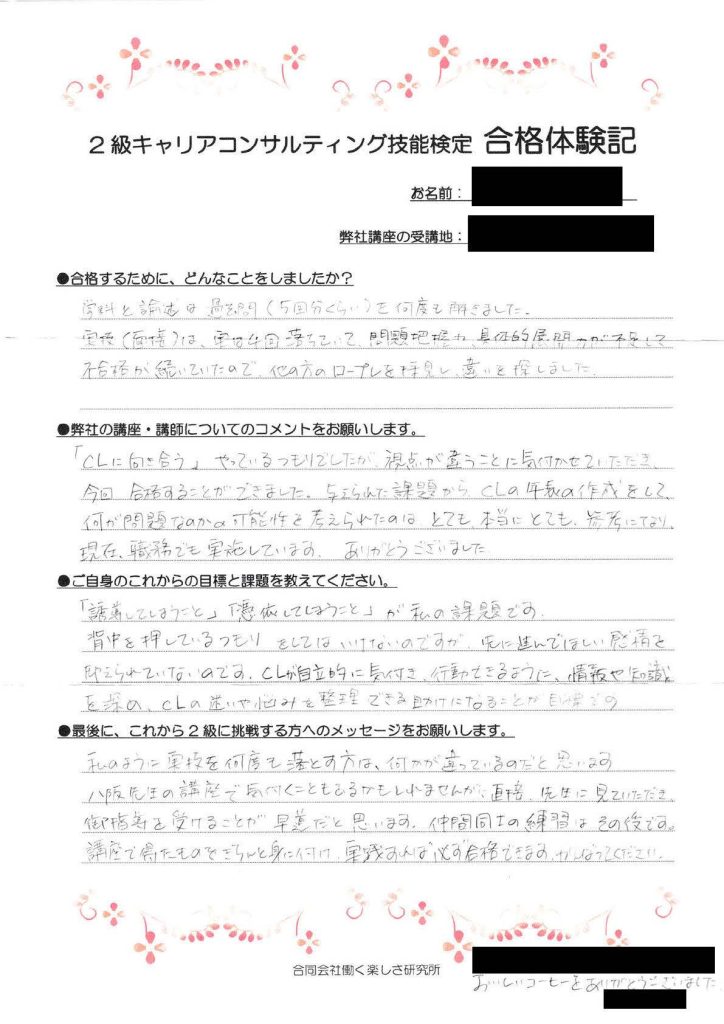 2級キャリアコンサルティング技能検定 合格体験記
お名前：
弊社講座の受講地：
●合格するために、どんなことをしましたか？
学科と論述は過去問（5回分くらい）を何度も解きました。
実技（面接）は、実は4回落ちていて、問題把握力、具体的展開力が不足して
不合格が続いていたので、他の方のロープレを拝見し、違いを探しました。
●弊社の講座・講師についてのコメントをお願いします。
「CLに向き合う」やっているつもりでしたが、視点が違うことに気付かせていただき、
今回、合格することができました。与えられた課題から、CLの年表の作成をして、
何が問題なのかの可能性を考えられたのは、とても、本当にとても、参考になり、
現在、職務でも実施しています。ありがとうございました
●ご自身のこれからの目標と課題を教えてください。
「誘導してしまうこと」「憑依してしまうこと」が私の課題です。
背中を押しているつもりをしてはいけないのですが、先に進んでほしい感情を
抑えられていないのです。CLが自立的に気付き、行動できるように、情報や知識
を深め、CLの迷いや悩みを整理できる助けになることが目標です
●最後に、これから２級に挑戦する方へのメッセージをお願いします。
私のように実技を何度も落とす方は、何かが違っているのだと思います
八阪先生の講座で気付くこともあるかもしれませんが、直接、先生に見ていただき、
御指導を受けることが早道だと思います。仲間同士の練習はその後です。
講座で得たものをきちんと身に付け、実践すれば必ず合格できます。がんばってください。
合同会社働く楽しさ研究所
おいしいコーヒーをありがとうございました。